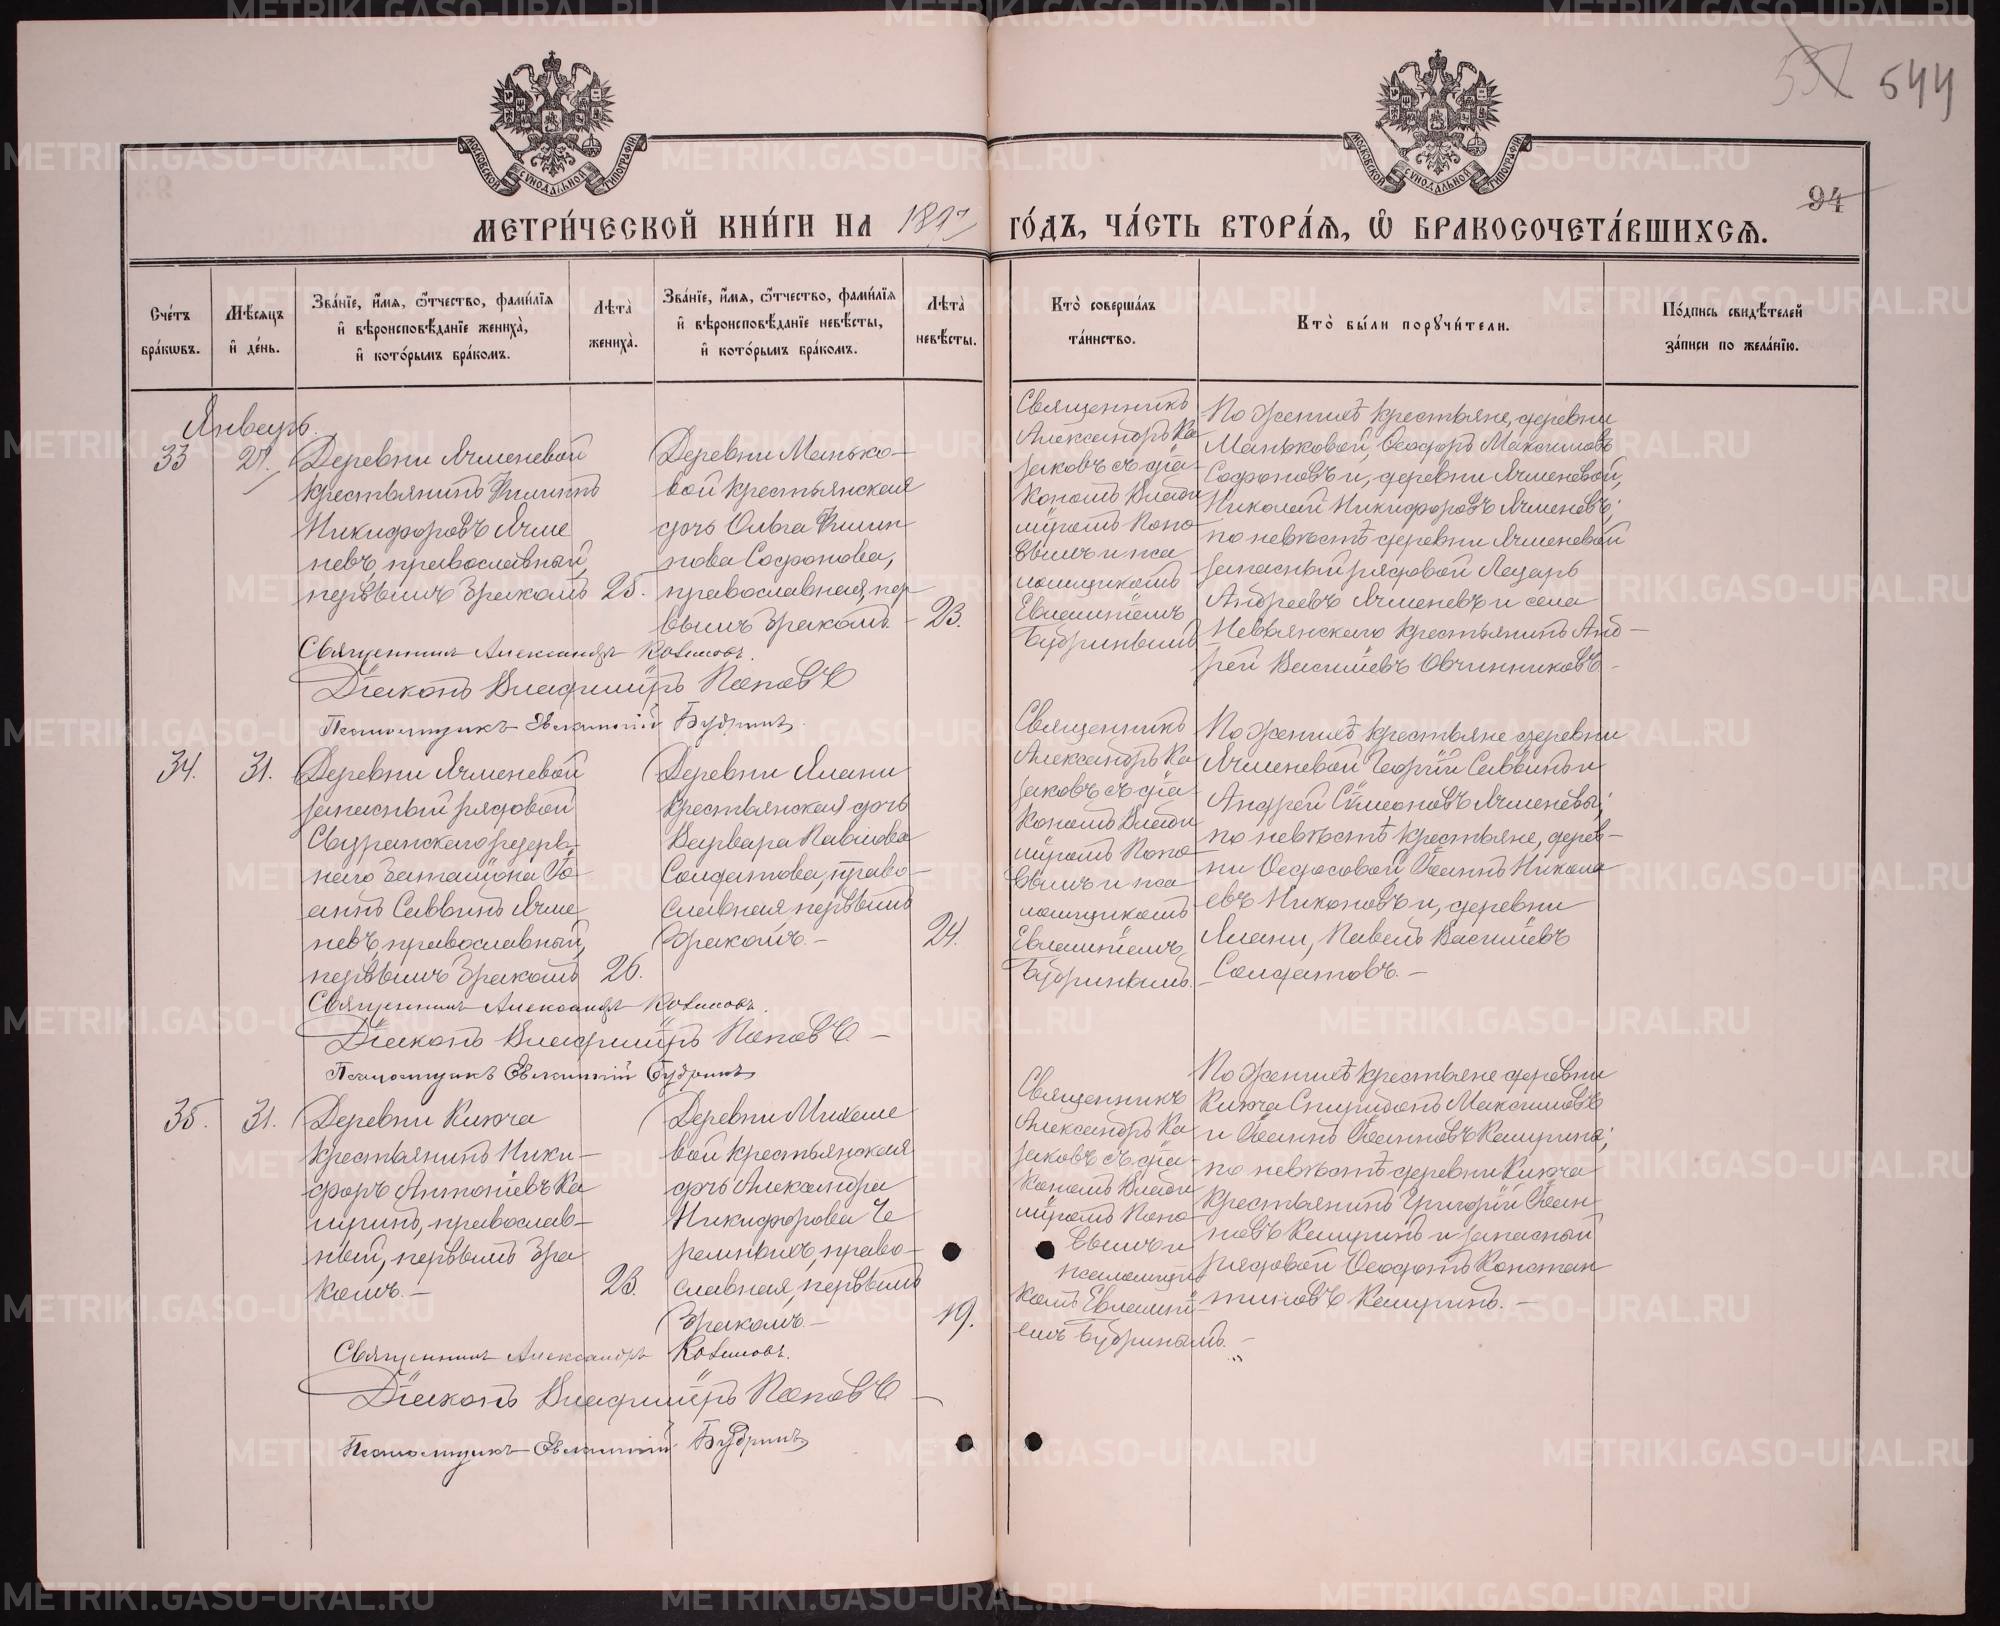 537 544
94
МОСКОВСКОЙ СѴНОДАЛЬНОЙ ТИПОГРАФІИ
МОСКОВСКОЙ СѴНОДАЛЬНОЙ ТИПОГРАФІИ
МЕТРИ́ЧЕСКОЙ КНИ́ГИ НА 1897 ГО́ДЪ, ЧА́СТЬ ВТОРА́Я, Ѡ БРАКОСОЧЕТА́ВШИХСѦ.
Сче́тъ бра́кѡвъ.
Мѣ́сяцъ и де́нь.
Зва́нїе, и́мѧ, ѻ҆́тчество, фами́лїѧ
и҆ вѣроисповѣ́данїе жениха̀,
и҆ кото́рымъ бра́комъ.
Лѣта̀ жениха̀.
Зва́нїе, и́мѧ, ѻ҆́тчество, фами́лїѧ
и҆ вѣроисповѣ́данїе невѣ́сты,
и҆ кото́рымъ бра́комъ.
Лѣта̀ невѣ́сты.
Кто̀ соверша́лъ та́инство.
Кто̀ бы́ли порꙋчи́тели.
По́дпись свидѣ́телей
за́писи по жела́нїю.
Январь.
33
27.
Деревни Ячменевой
крестьянинъ Филиппъ
Никифоровъ Ячме
невъ, православный,
первымъ бракомъ
25.
Деревни Манько–
вой крестьянская
дочь Ольга Филип
пова Софонова,
православная, пер
вымъ бракомъ. –
23.
Священникъ
Александръ Ка
заковъ съ діа–
кономъ Влади
міромъ Попо–
вымъ и пса
ломщикомъ
Евлампіемъ
Будринымъ
По женихѣ крестьяне, деревни
Маньковой, Ѳеодоръ Максимовъ
Софоновъ и, деревни Ячменевой,
Николай Никифоровъ Ячменевъ;
по невѣстѣ деревни Ячменевой
запасный рядовой Лазарь
Андреевъ Ячменевъ и села
Невьянскаго крестьянинъ Анд–
рей Васильевъ Овчинниковъ –
Священникъ Александръ Казаковъ.
Діаконъ Владиміръ Поповъ
Псаломщикъ Евлампій Будринъ.
34.
31.
Деревни Ячменевой
запасный рядовой
резерв–
наго баталіона Іо
аннъ Саввинъ Ячме
невъ, православный,
первымъ бракомъ
26.
Деревни Ялани
крестьянская дочь
Варвара Павлова
Солдатова, право–
славная первымъ
бракомъ. –
24.
Священникъ
Александръ Ка
заковъ съ діа–
кономъ Влади
міромъ Попо–
вымъ и пса
ломщикомъ
Евлампіемъ
Будринымъ.
По женихѣ крестьяне деревни
Ячменевой Георгій Саввинъ и
Андрей Сѵмеоновъ Ячменевы;
по невѣстѣ крестьяне, дерев–
ни Ѳедосовой Іоаннъ Никола
евъ Никоновъ и, деревни
Ялани, Павелъ Васильевъ
Солдатовъ. –
Священникъ Александръ Казаковъ.
Діаконъ Владиміръ Поповъ –
Псаломщикъ Евлампій Будринъ
35.
31.
Деревни Ключа
крестьянинъ Ники–
форъ Антоніевъ Ка
ширинъ, православ–
ный, первымъ бра
комъ. –
23.
Деревни Михале
вой крестьянская
дочь Александра
Никифорова Че
ремныхъ, право–
славная, первымъ
бракомъ. –
19.
Священникъ
Александръ Ка
заковъ съ діа–
кономъ Влади
міромъ Попо–
вымъ и
псаломщи
комъ Евлампі
емъ Будринымъ. –
По женихѣ крестьяне деревни
Ключа Спиридонъ Максимовъ
и Іоаннъ Іоанновъ Каширины;
по невѣстѣ деревни Ключа
крестьянинъ Григорій Іоан
новъ Каширинъ и запасный
рядовой Ѳеофанъ Констан
тиновъ Каширинъ. –
Священникъ Александръ Казаковъ.
Діаконъ Владиміръ Поповъ –
Псаломщикъ Евлампій Будринъ
METRIKI.GASO-URAL.RU